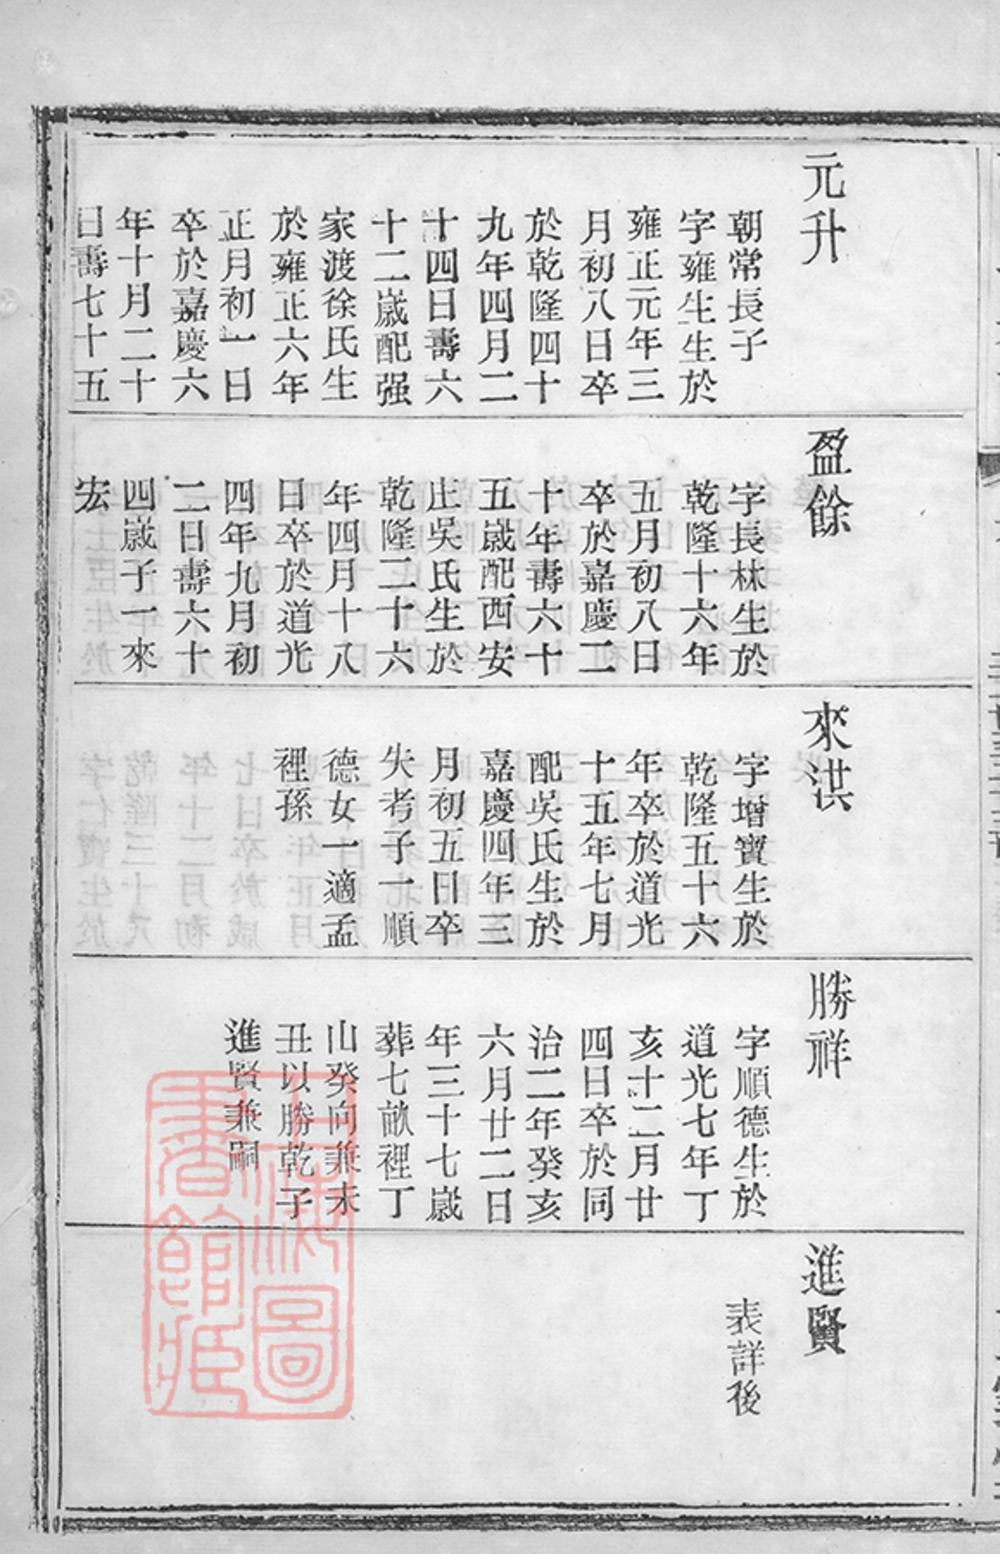 元升
朝常長子
字雍生生於
雍正元年三
月初八日卒
於乾隆四十
九年四月二
十四日壽六
十二嵗配强
家渡徐氏生
於雍正六年
正月初一日
卒於嘉慶六
年十月二十
日壽七十五
盈餘
字長林生於
乾隆十六年
五月初八日
卒於嘉慶二
十年壽六十
五嵗配西安
庄吳氏生於
乾隆二十六
年四月十八
日卒於道光
四年九月初
二日壽六十
四嵗子一來
宏
來洪
字增寳生於
乾隆五十六
年卒於道光
十五年七月
配吳氏生於
嘉慶四年三
月初五日卒
失考子一順
德女一適孟
裡孫
勝祥
字順德生於
道光七年丁
亥十二月廿
四日卒於同
治二年癸亥
六月廿二日
年三十七嵗
葬七畝裡丁
山癸向兼未
丑以勝乾子
進賢兼嗣
進賢
表詳後
上海圖
書館藏